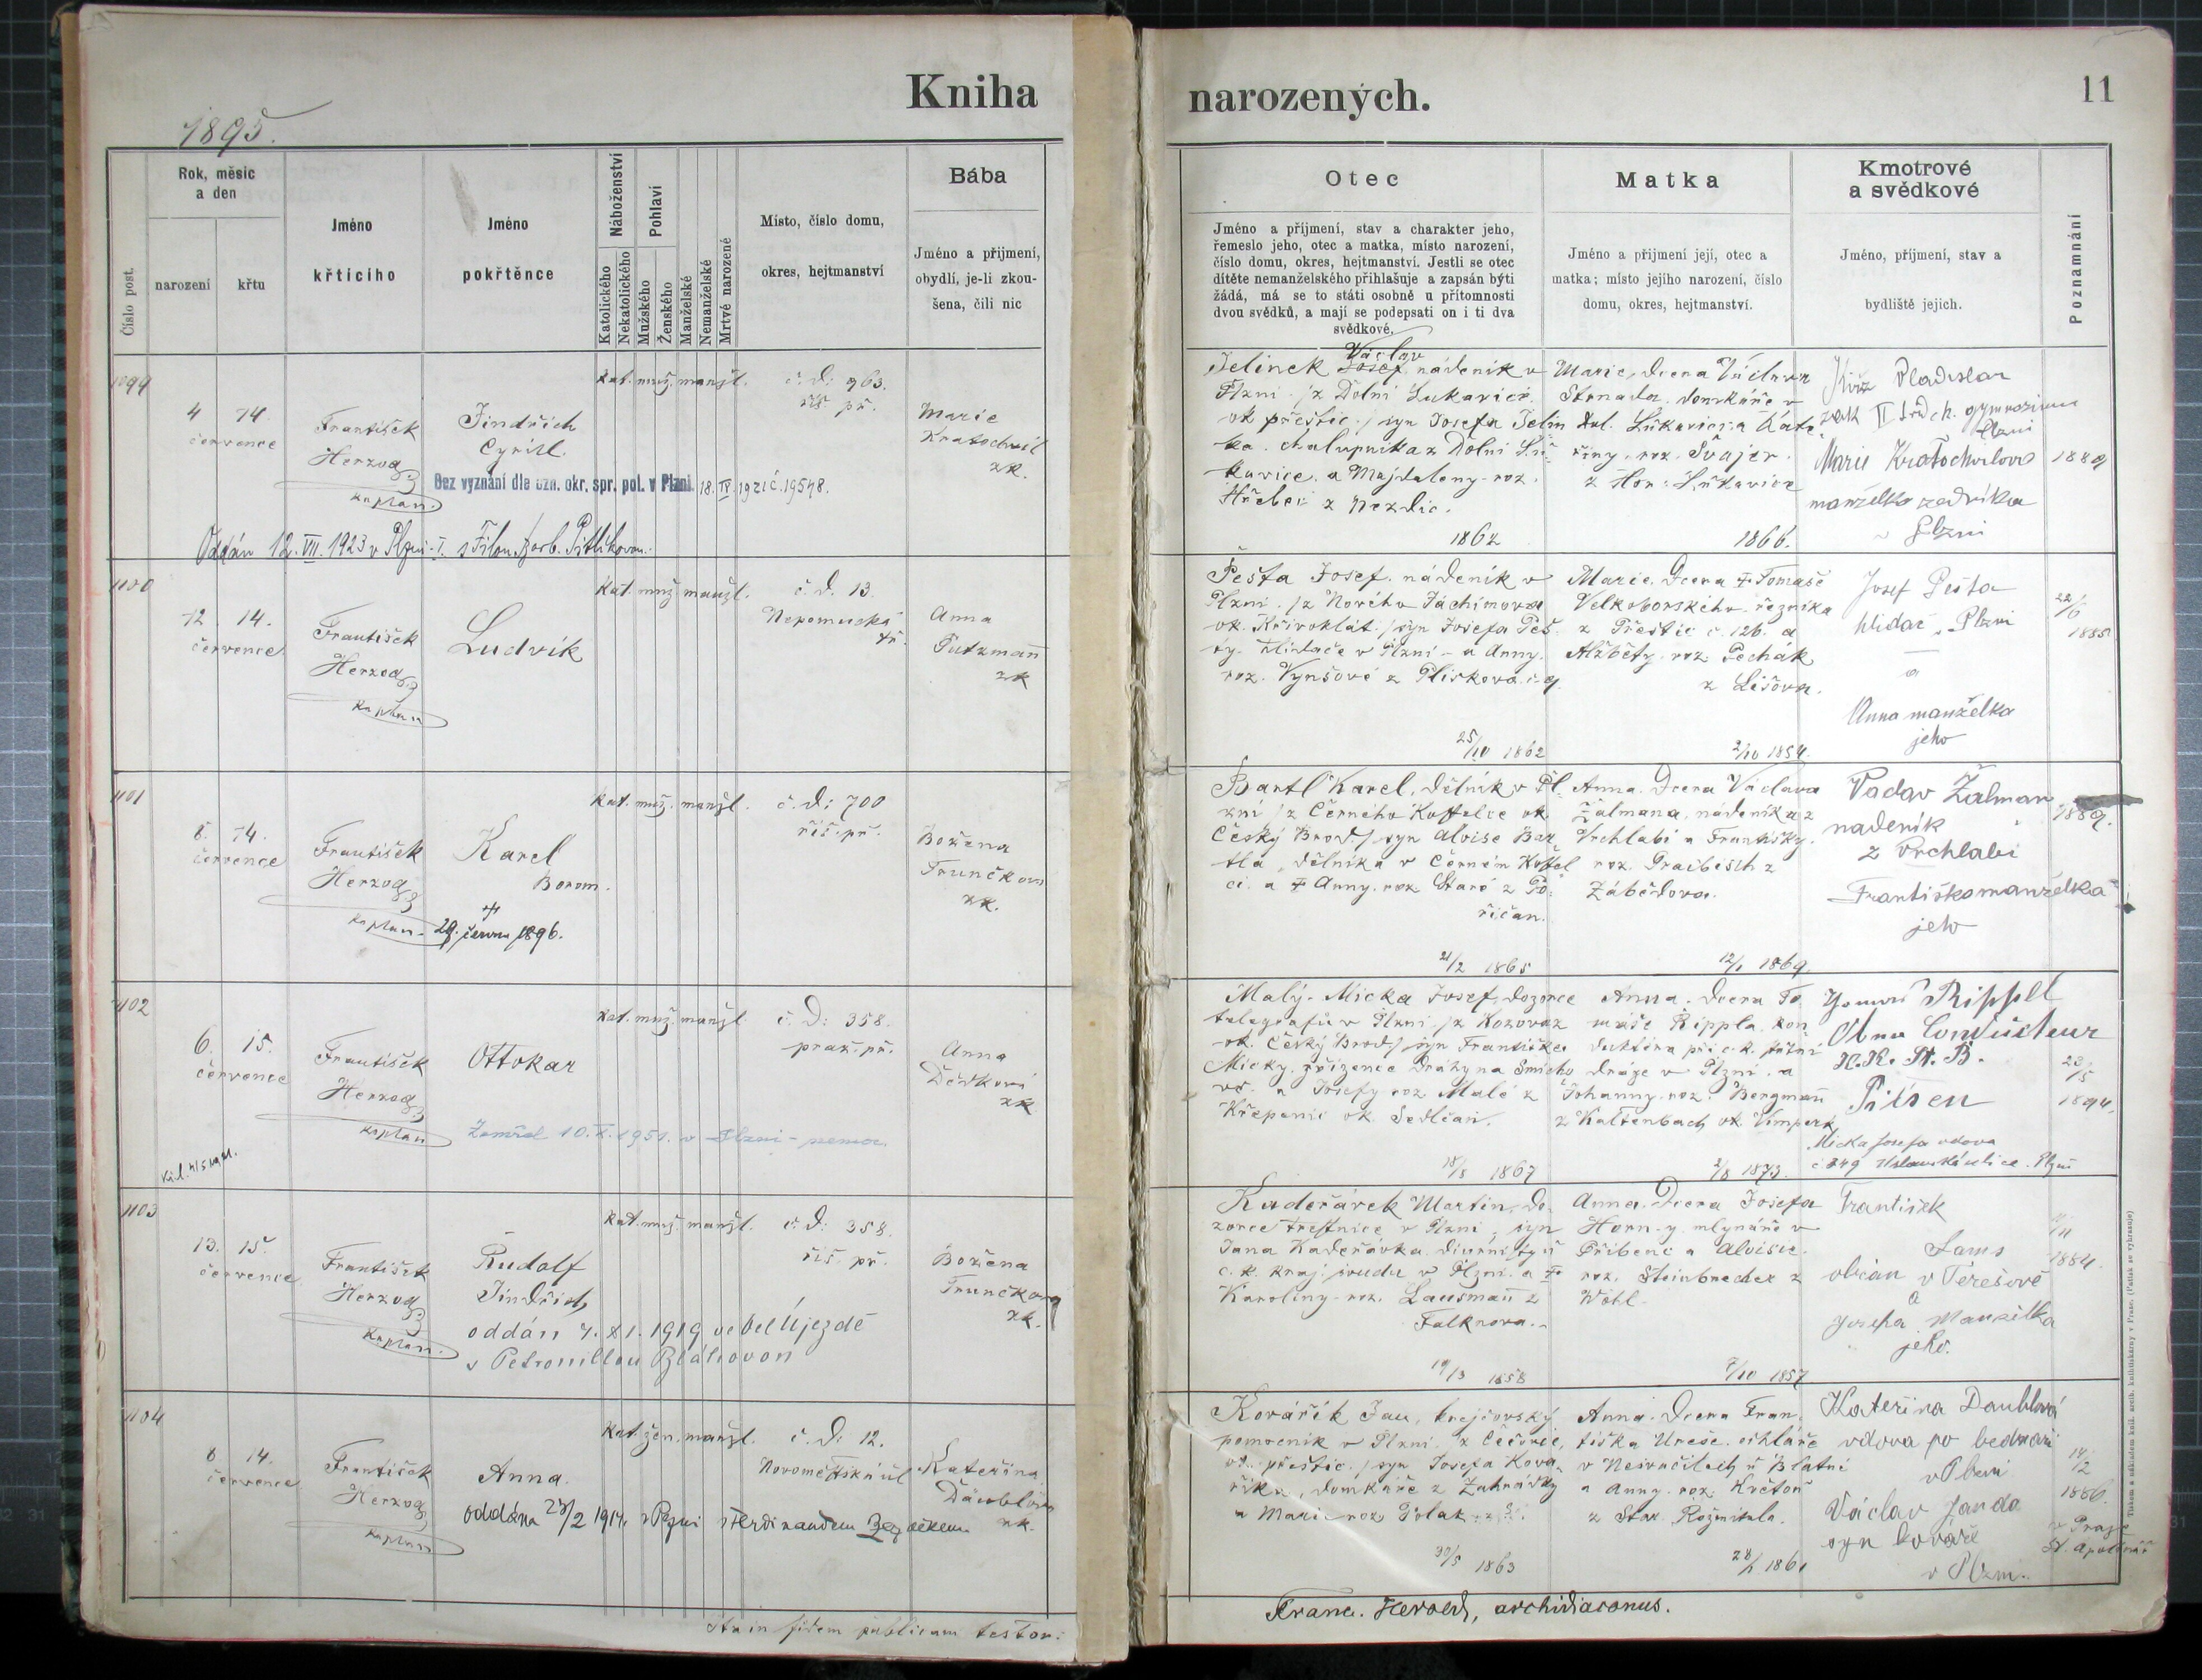 Kniha
narozených.
11
1895.
Číslo post.
Rok, měsíc
a den
narození
křtu
Jméno
křticího
Jméno
pokřtěnce
Náboženství
Katolického
Nekatolického
Pohlaví
Mužského
Ženského
Manželské
Nemanželské
Mrtvě narozené
Místo, číslo domu,
okres, hejtmanství
Bába
Jméno a přijmení,
obydlí, je-li zkou-
šena, čili nic
Otec
Jméno a příjmení, stav a charakter jeho,
řemeslo jeho, otec a matka, místo narození,
číslo domu, okres, hejtmanství. Jestli se otec
dítěte nemanželského přihlašuje a zapsán býti
žádá, má se to státi osobně u přítomnosti
dvou svědků, a mají se podepsati on i ti dva
svědkové.
Matka
Jméno a příjmení její, otec a
matka; místo jejího narození, číslo
domu, okres, hejtmanství.
Kmotrové
a svědkové
Jméno, příjmení, stav a
bydliště jejich.
Poznamnání
1099
4 14.
července
František
Herzog
kaplan.
Jindřich
Cyrill.
kat. muž. manžl.
č. d. 963.
říš. př.
Marie
Kratochwil
zk.
Bez vyznání dle ozn. okr. spr. pol. v Plzni. 18. IV. 192 č. 19548.
Oddán 12. VII. 1923 v Plzni-I. s Filom. Barb. Pitlíkovou.
Jelinek Josef Václav nádeník v
Plzni /z Dolní Lukavice.
ok. přeštic./ syn Josefa Jelin
ka. chalupníka z Dolní Lu
kavice. a Majdaleny roz.
z Nezdic.
1862
Marie, dcera Václava
domkáře v
Dol. Lukavici a Kate
řiny. roz. Švajer.
z Hor: Lukavice
1866.
Vladislav
žák II gymnasium
Plzni
Marie Kratochvílová
manželka
v Plzni
1889
1100
12. 14.
července
František
Herzog
kaplan
Ludvík
kat. muž. manžl.
č. d. 13.
Nepomucká
tř.
Anna
Putzmann
zk
Pešta Josef. nádeník v
Plzni. /z Nového Jáchimova
ok. Křivoklát./ syn Josefa Peš
ty. hlídače v Plzni - a Anny.
roz. Vynšové z Plískova č. 9.
25/10 1862
Marie. dcera † Tomáše
Velkoborského. řezníka
z Přeštic č. 126. a
Alžběty. roz. Pechák
z Lišova.
2/10 1854.
Josef Pešta
hlídač v Plzni
a
Anna manželka
jeho
22/6
1885.
1101
8. 14.
července
František
Herzog
kaplan
Karel
Borom.
†
29. června 1896.
kat. muž. manžl.
č. d: 700
říš. př.
Božena
Trunčkova
zk.
Bartl Karel, dělník v Pl-
zni /z Černého Kostelce ok.
Český Brod/ syn Aloise Bar
tla, dělníka v Černém Kostel
ci. a † Anny. roz. Staré z Po
říčan.
21/2 1865
Anna. dcera Václava
Žalmana, nádeníka z
Vrchlabí a Františky.
roz. Praibisch z
Zábědova.
12/1 1869.
Vaclav Žalman
nadeník
z Vrchlabí
Františka manželka
jeho
1889.
1102
6. 15.
července
František
Herzog
kaplan
Ottokar
kat. muž. manžl.
č. d: 358.
praž. př.
Anna
Dědková
zk
Zemřel 10. X. 1951. v Plzni - nemoc.
Malý-Micka Josef, dozorce
telegrafů v Plzni /z Kozovaz
ok. Český Brod/ syn Františka
Micky, zřízence dráhy na Smícho
vě. a Josefy roz. Malé z
Křepenic ok. Sedlčan.
18/3 1867
Anna. dcera To
máše Rippla, kon
duktéra při c. k. státní
dráze v Plzni. a
Johanny. roz. Bergmann
z Kaltenbach ok. Vimperk
2/8 1873.
Rippl
Ober Conducteur
K. K. St. B.
Pilsen
Micka Josefa vdova
č 249 ulice. Plzeň
20/5
1894.
1103
13. 15.
července
František
Herzog
kaplan.
Rudolf
Jindřich
oddán 7. XI. 1919 ve Vel Újezdě
s Petronillou Bláhovou
kat. muž. manžl.
č. d: 358.
říš. př.
Božena
Trunčkova
zk.
Kadeřávek Martin, do
zorce trestnice v Plzni, syn
Jana Kadeřávka. diurnisty u
c. k. kraj. soudu v Plzni. a †
Karoliny. roz. Lausmann z
Falknova.
19/3 1858
Anna. Dcera Josefa
Horn-y. mlynáře v
Příbenc a Aloisie.
roz. Steinbrecher z
Wohl
7/10 1857
František
občan v Terešově
a
Josefa Manželka
jeho.
11/11
1884.
1104
6 14.
července
František
Herzog
kaplan
Anna.
oddána 23/2 1914. v Plzni s Ferdinandem
kat. žen. manžl.
č. d: 12.
Novoměstská ul
Kateřina
Däublová
zk.
Kovářík Jan, krejčovský
pomocník v Plzni z Čečovic,
ok. přeštic. / syn Josefa Ková
říka, domkáře z Zahrádky
a Marie roz. Polak
30/5 1863
Anna. Dcera Fran
tiška Ureše. cihláře
v Nesvačilech u Blatné
a Anny. roz. Květoň
z Star. Rožmitala.
28/1 1861
Kateřina Daublová
vdova po bednáři
v Plzni
Václav Janda
syn kováře
v Plzni.
14/2
1886.
v Praze
Sv. Apolináře
Ita in fidem publicam testor:
Franc. Herold, archidiaconus.